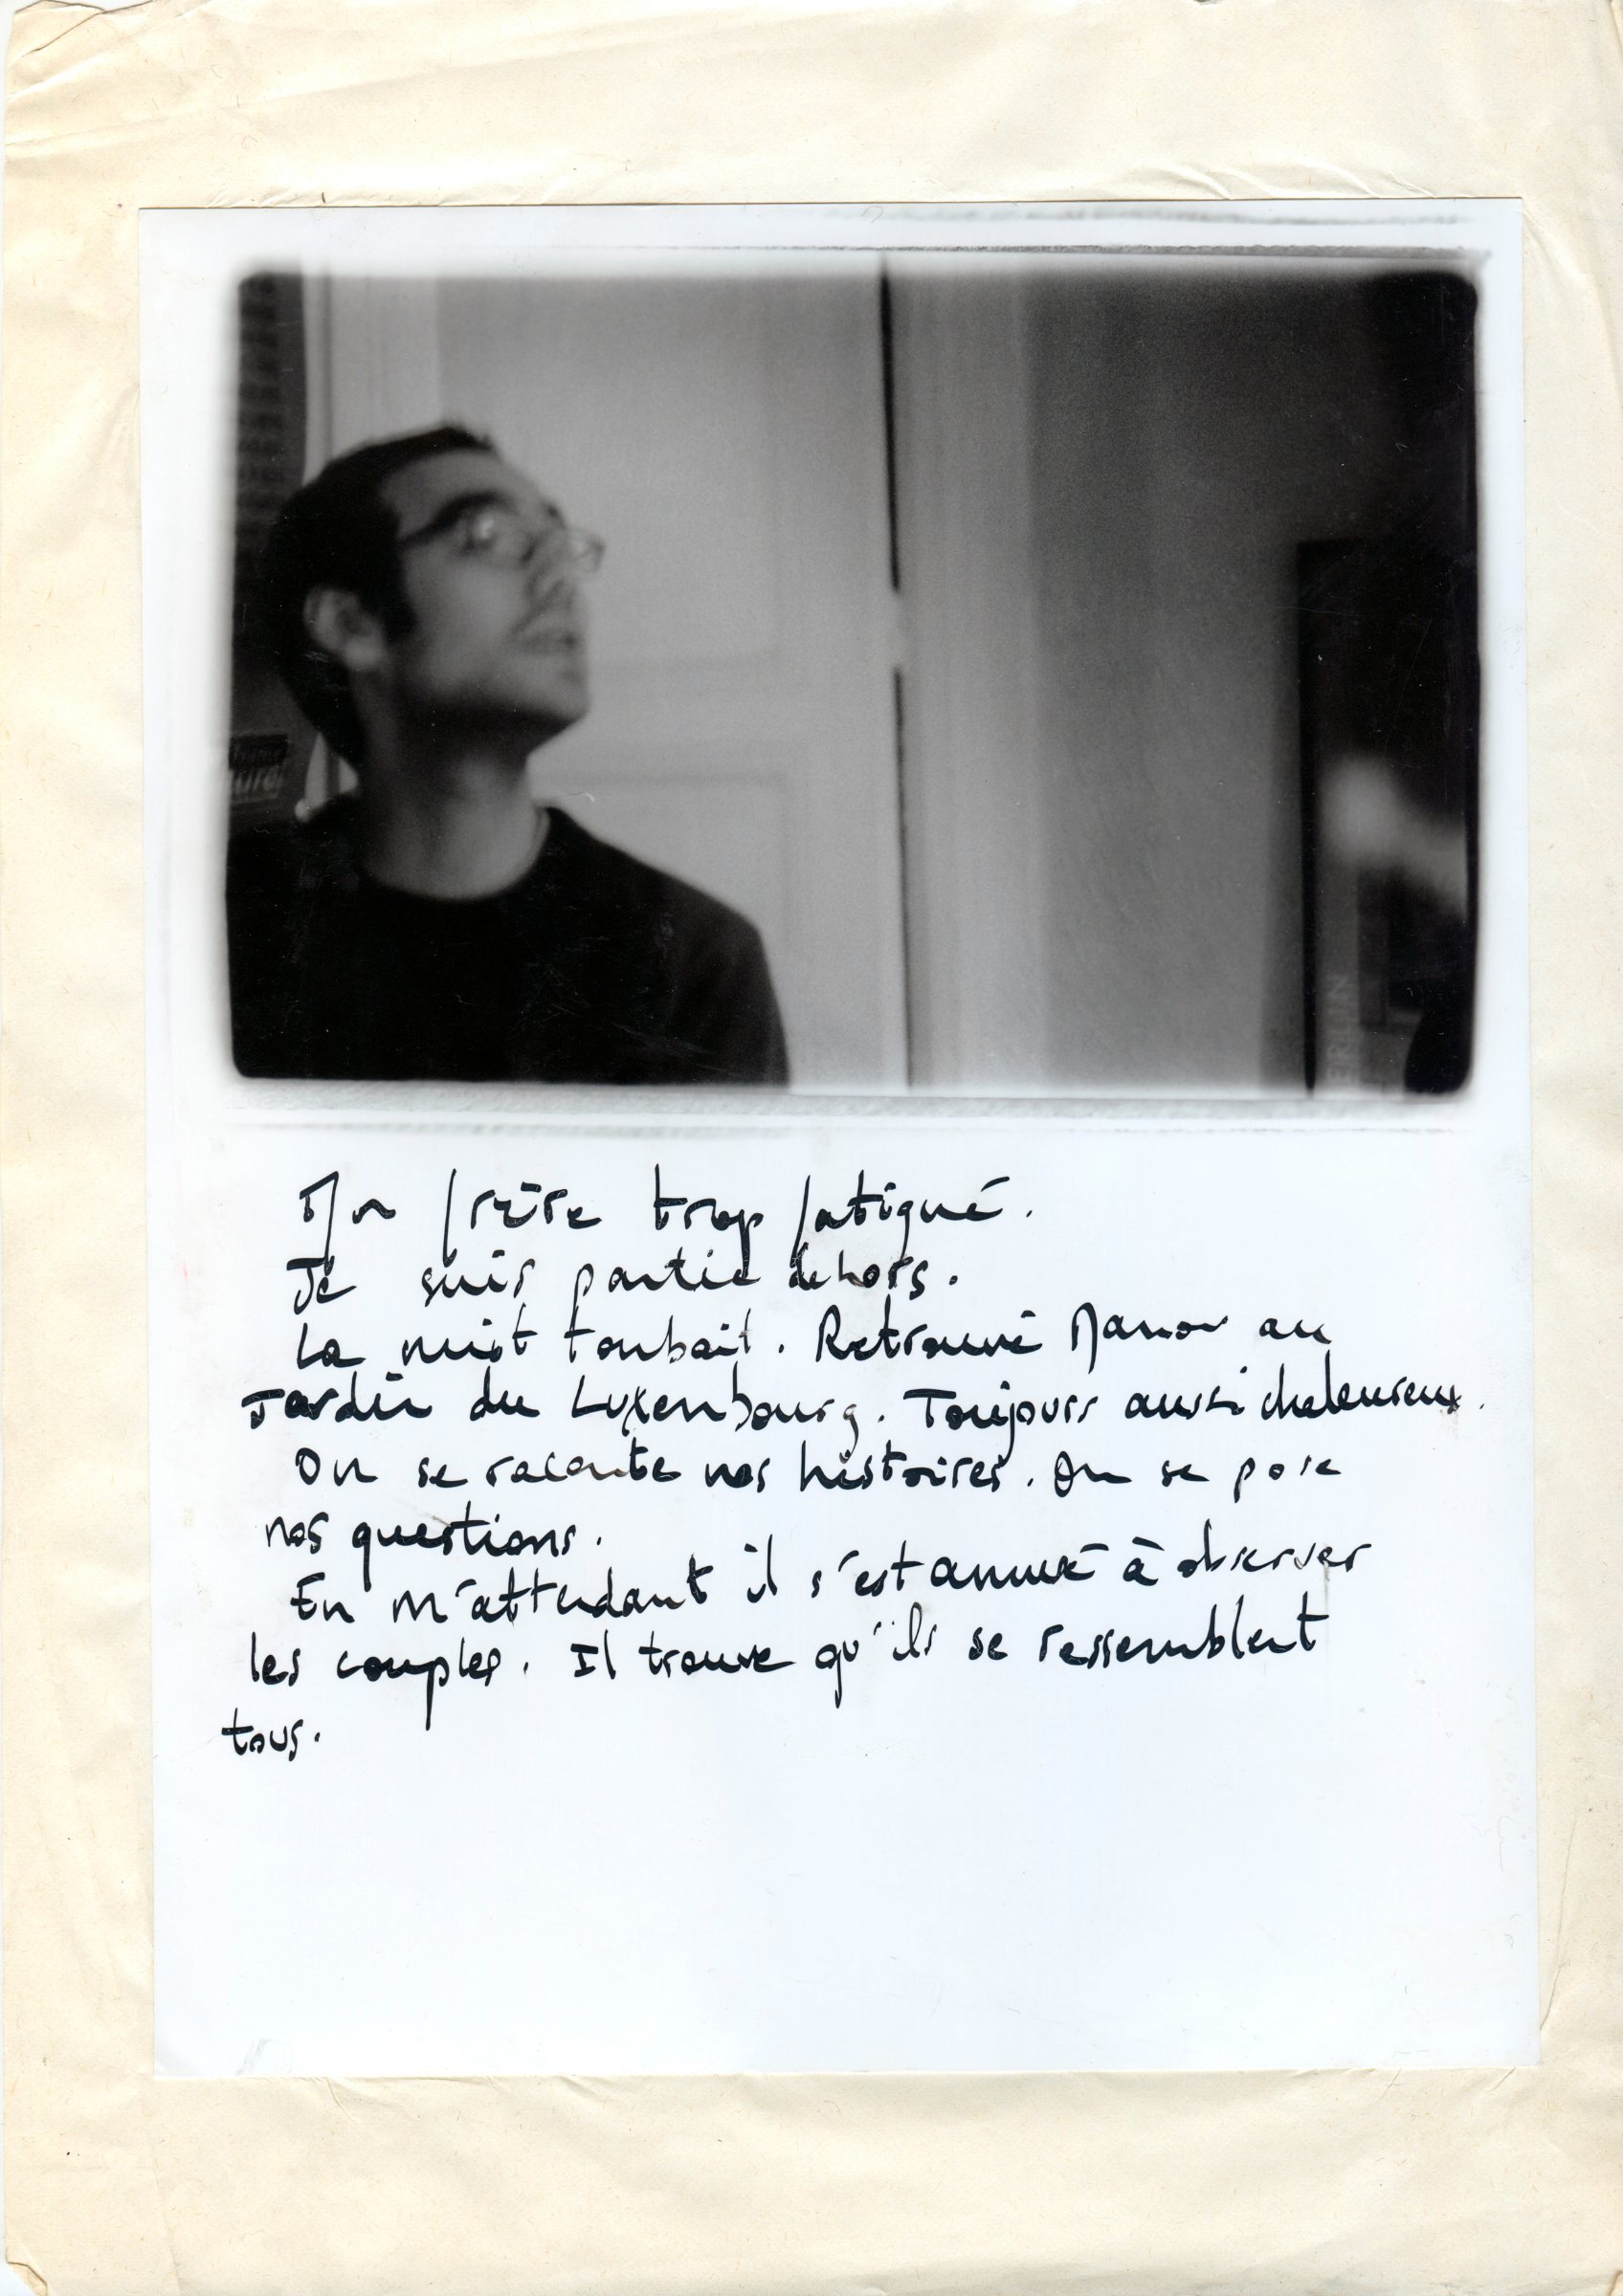 ERLIN
Mon frère trop fatigué.
Je suis partie dehors.
La nuit tombait. Retrouvé au
Jardin du Luxembourg. Toujours aussi chaleureux.
On se raconte nos histoires. On se pose
nos questions.
En m'attendant il s'est amusé à observer
les couples. Il trouve qu'ils se ressemblent
tous.